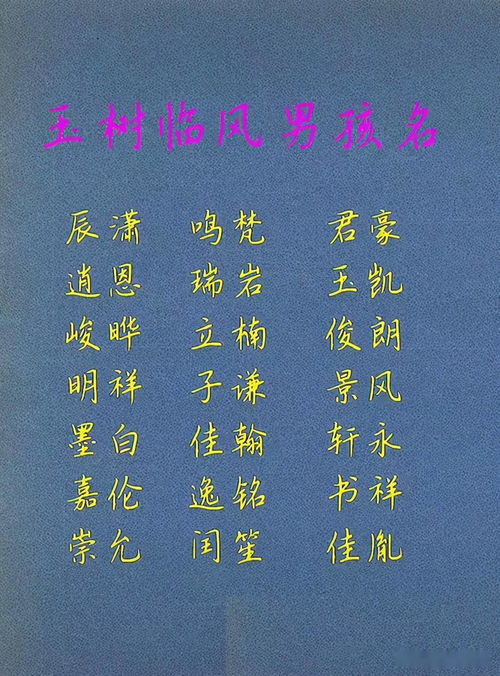 玉树临风男孩名
辰潇 鸣梵 君豪
逍恩 瑞岩 玉凯
峻晔 立楠 俊朗
明祥 子谦 景风
墨白 佳翰 轩永
嘉伦 逸铭 书祥
崇允 闰笙 佳胤